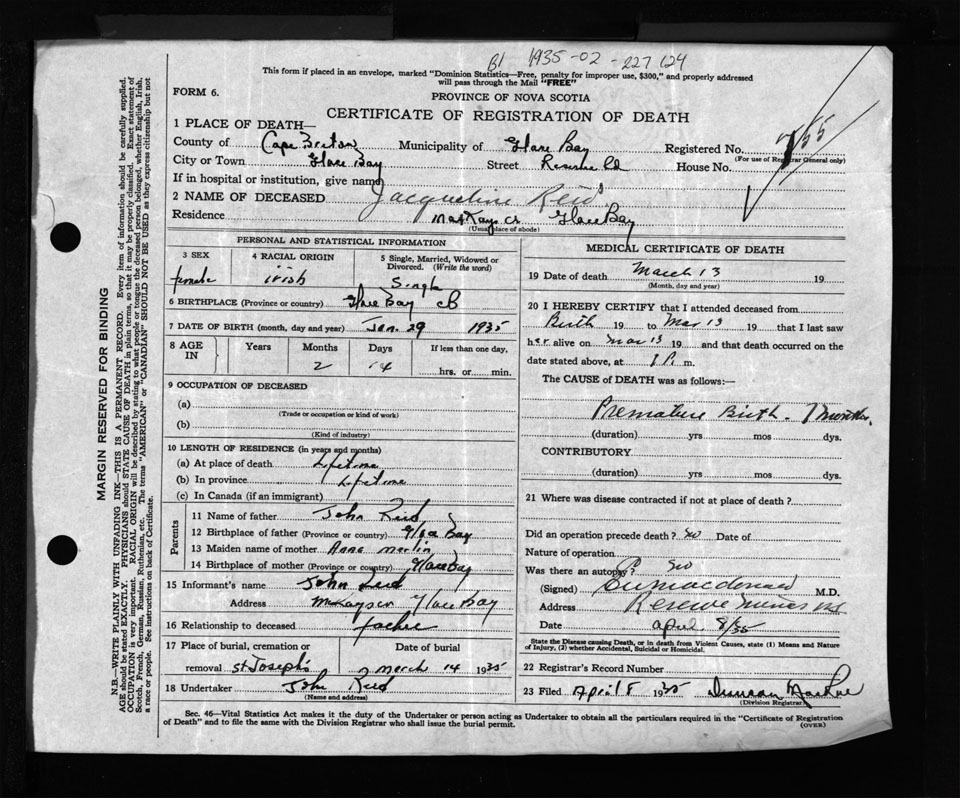 B1 1935-02-227124
This form if placed in an envelope, marked "Dominion Statistics—Free, penalty for improper use, $300," and properly addressed
will pass through the Mail "FREE"
FORM 6.
PROVINCE OF NOVA SCOTIA
CERTIFICATE OF REGISTRATION OF DEATH
1 PLACE OF DEATH—
County of Cape Breton Municipality of Glace Bay Registered No.
(For use of Registrar General only)
City or Town Glace Bay Street Reserve Rd House No.
If in hospital or institution, give name
2 NAME OF DECEASED Jacqueline Reid
Residence MacKays Cr Glace Bay
(Usual place of abode)
PERSONAL AND STATISTICAL INFORMATION
3 SEX female
4 RACIAL ORIGIN irish
5 Single, Married, Widowed or Divorced. (Write the word) Single
6 BIRTHPLACE (Province or country) Glace Bay CB
7 DATE OF BIRTH (month, day and year) Jan. 29 1935
8 AGE IN Years Months 2 Days 14 If less than one day, hrs. or min.
9 OCCUPATION OF DECEASED
(a)
(Trade or occupation or kind of work)
(b)
(Kind of industry)
10 LENGTH OF RESIDENCE (in years and months)
(a) At place of death Lifetime
(b) In province Lifetime
(c) In Canada (if an immigrant)
Parents
11 Name of father John Reid
12 Birthplace of father (Province or country) Glace Bay
13 Maiden name of mother Anna Merlin
14 Birthplace of mother (Province or country) Glace Bay
15 Informant's name John Reid
Address Glace Bay
16 Relationship to deceased father
17 Place of burial, cremation or removal St Josephs
Date of burial March 14 1935
18 Undertaker John Reid
(Name and address)
MEDICAL CERTIFICATE OF DEATH
19 Date of death March 13 19
(Month, day and year)
20 I HEREBY CERTIFY that I attended deceased from
Birth 19 to Mar 13 19 that I last saw
her alive on Mar 13 19 and that death occurred on the
date stated above, at 1 P. m.
The CAUSE of DEATH was as follows:—
Premature Birth. 7 months.
(duration) yrs mos dys.
CONTRIBUTORY
(duration) yrs mos dys.
21 Where was disease contracted if not at place of death?
Did an operation precede death? No Date of
Nature of operation
Was there an autopsy? No
(Signed) MacDonald M.D.
Address Reserve Mines NS
Date April 8/35
State the Disease causing Death, or in death from Violent Causes, state (1) Means and Nature
of Injury, (2) whether Accidental, Suicidal or Homicidal.
22 Registrar's Record Number
23 Filed April 8 1935 Duncan MacRae
(Division Registrar)
Sec. 46—Vital Statistics Act makes it the duty of the Undertaker or person acting as Undertaker to obtain all the particulars required in the "Certificate of Registration
of Death" and to file the same with the Division Registrar who shall issue the burial permit.
(OVER)
MARGIN RESERVED FOR BINDING
N.B.—WRITE PLAINLY WITH UNFADING INK—THIS IS A PERMANENT RECORD. Every item of information should be carefully supplied.
AGE should be stated EXACTLY. PHYSICIANS should STATE CAUSE OF DEATH in plain terms, so that it may be properly classified. Exact statement of
OCCUPATION is very important. RACIAL ORIGIN will be described by stating to what people or tongue the deceased person belonged, whether English, Irish,
Scotch, French, German, Russian, Ruthenian, etc. The terms "AMERICAN" or "CANADIAN" SHOULD NOT BE USED as they express citizenship but not
a race or people. See instructions on back of Certificate.